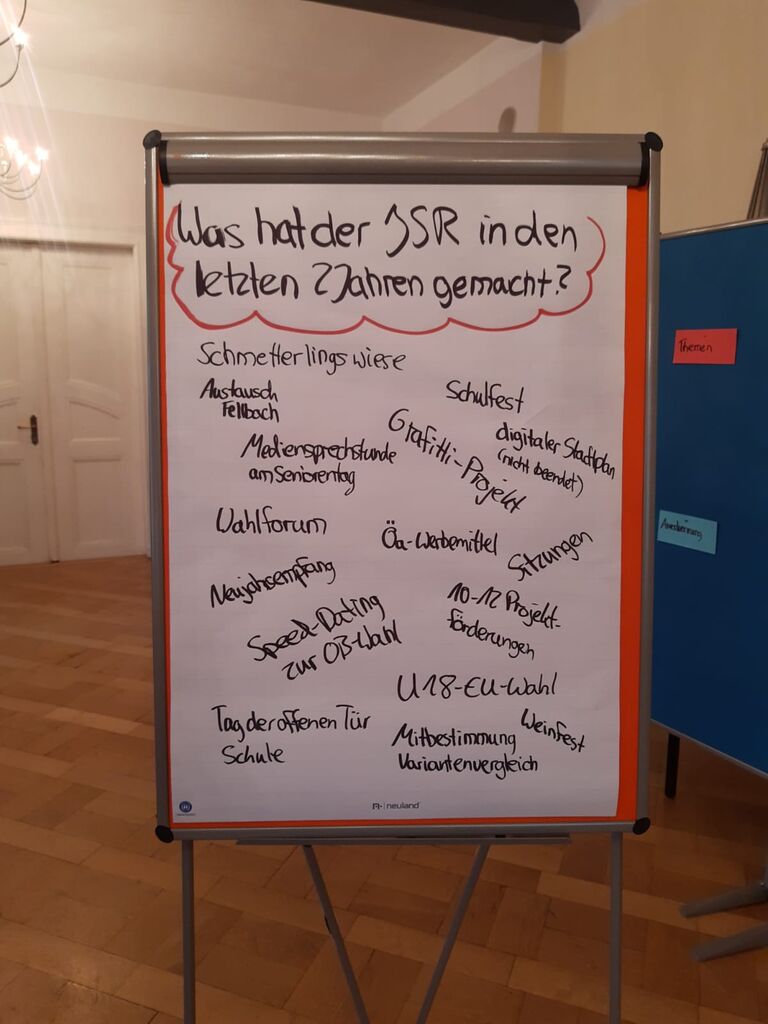 Was hat der JSR in den
letzten 2 Jahren gemacht?
Schmetterlingswiese
Austausch
Fellbach
Schulfest
Mediensprechstunde
am Seniorentag
Grafitti-Projekt
digitaler Stadtplan
(nicht beendet)
Wahlforum
Öa-Werbemittel
Sitzungen
Neujahsempfang
Speed-Dating
zur OB-Wahl
10-12 Projekt-
förderungen
U18-EU-Wahl
Tag der offenen Tür
Schule
Mitbestimmung
Variantenvergleich
Weinfest
neuland
Themen